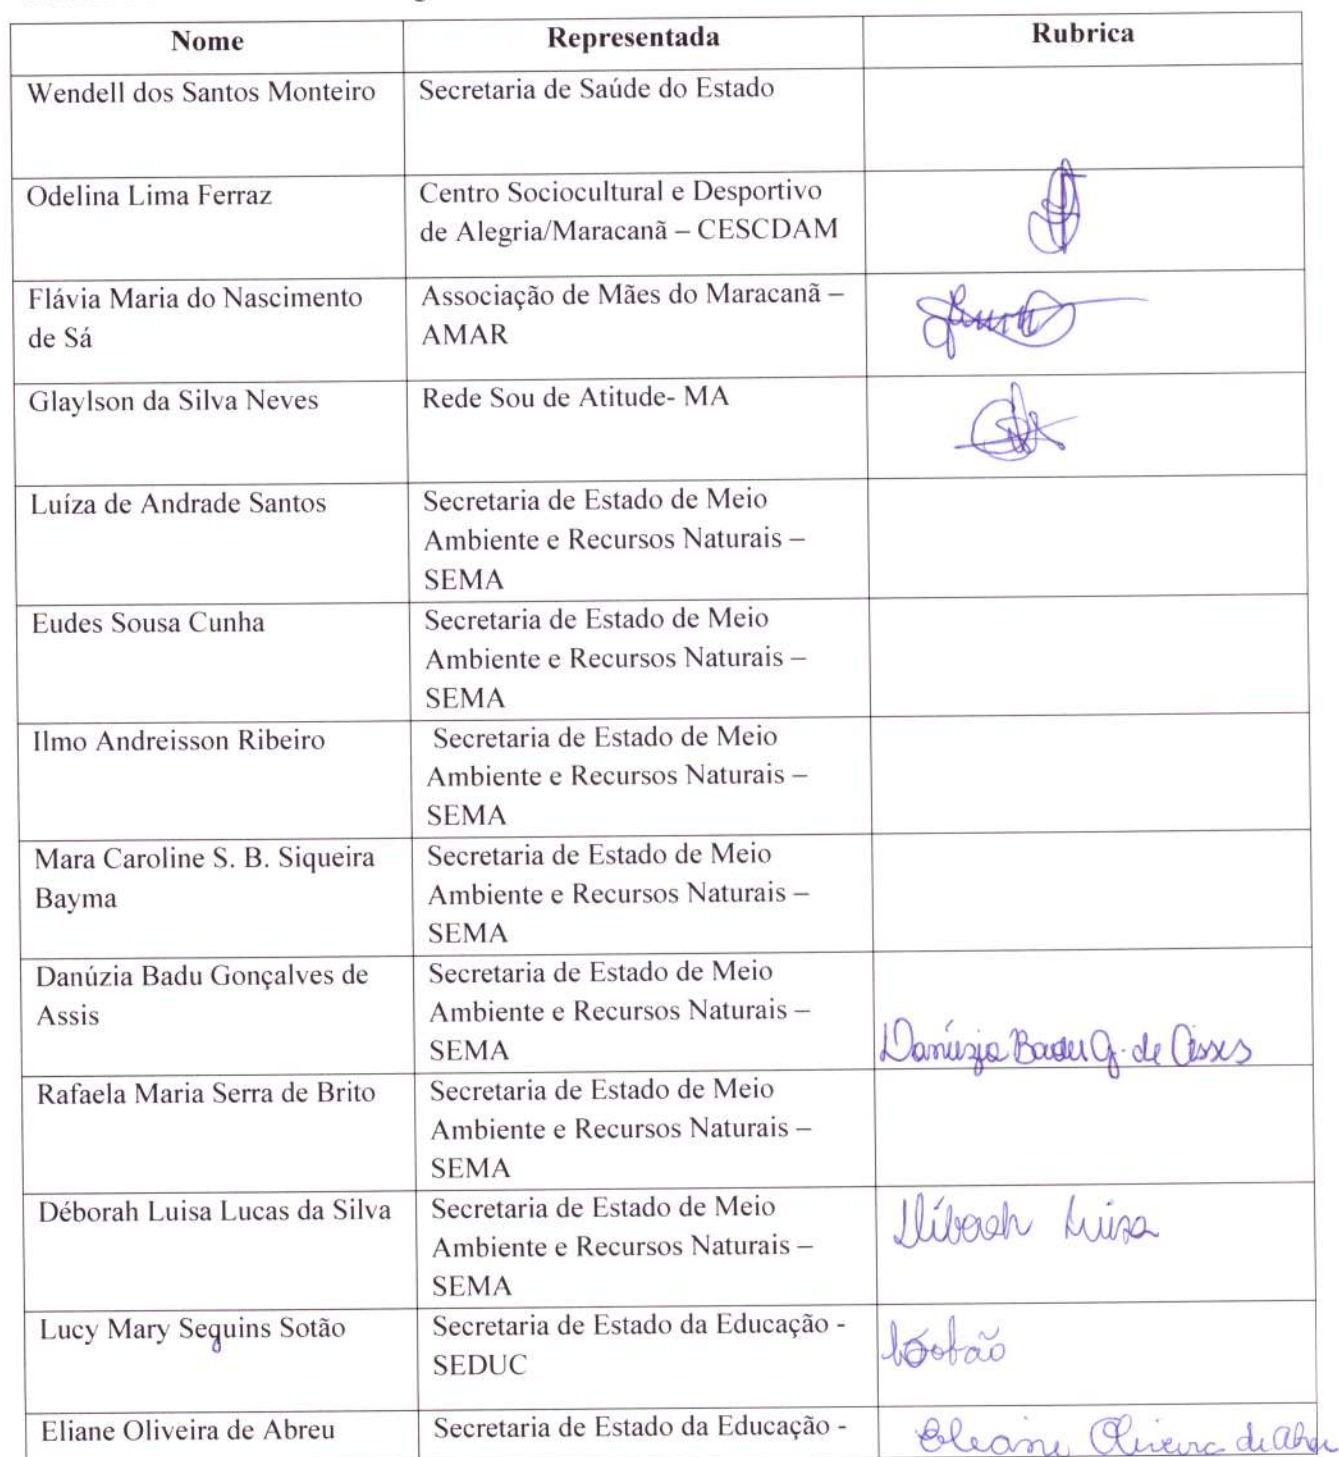 Nome Representada Rubrica
Wendell dos Santos Monteiro Secretaria de Saúde do Estado
Odelina Lima Ferraz Centro Sociocultural e Desportivo
de Alegria/Maracanã – CESCDAM
Flávia Maria do Nascimento Associação de Mães do Maracanã –
de Sá AMAR
Glaylson da Silva Neves Rede Sou de Atitude- MA
Luíza de Andrade Santos Secretaria de Estado de Meio
Ambiente e Recursos Naturais –
SEMA
Eudes Sousa Cunha Secretaria de Estado de Meio
Ambiente e Recursos Naturais –
SEMA
Ilmo Andreisson Ribeiro Secretaria de Estado de Meio
Ambiente e Recursos Naturais –
SEMA
Mara Caroline S. B. Siqueira Secretaria de Estado de Meio
Bayma Ambiente e Recursos Naturais –
SEMA
Danúzia Badu Gonçalves de Secretaria de Estado de Meio
Assis Ambiente e Recursos Naturais –
SEMA Danúzia Badu G. de Assis
Rafaela Maria Serra de Brito Secretaria de Estado de Meio
Ambiente e Recursos Naturais –
SEMA
Déborah Luisa Lucas da Silva Secretaria de Estado de Meio Déborah Luisa
Ambiente e Recursos Naturais –
SEMA
Lucy Mary Sequins Sotão Secretaria de Estado da Educação -
SEDUC
Eliane Oliveira de Abreu Secretaria de Estado da Educação - Eleane Oliveira de Abreu